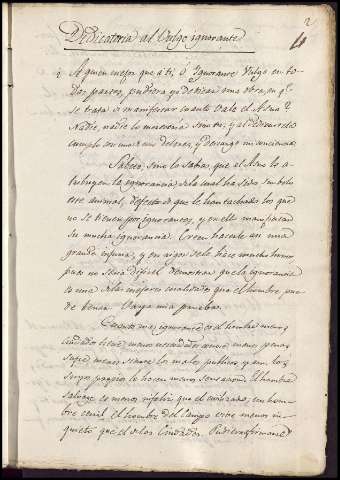 2
Dedicatoria al Vulgo ignorante
A quien mejor que à ti, ó Ignorante Vulgo en to-
das partes, pudiera yo dedicar una obra, en qe
se trata de manifestar cuanto vale el Asno?
Nadie, nadie lo merecería sino tu; y al dedicartelo
cumplo con uno de mis deberes, y descargo mi conciencia.
Sabete, sino lo sabes, que al Asno le a-
tribuyen la ignorancia, de la cual ha sido simbolo
este animal, defecto de que le han tachado los que
no se tienen por ignorantes, y en ello manifiestan
su mucha ignorancia. Creen hacerle en una
grande injuria, y en rigor se le hace mucho honor
pues no sería dificil demostrar que la ignorancia
es una de las mejores cualidades que el hombre pue-
de tener. Vaya una prueba.
Cuanto mas ignorante es el hombre menos
cuidados tiene, menos necesidades menos penas
sufre, menos siente los males publicos y aun los
suyos propios le hacen menos sensacion. El hombre
salvage es menos infeliz que el civilizado, un hom-
bre civil. el hombre del Campo vive menos in-
quieto que el de las Ciudades.